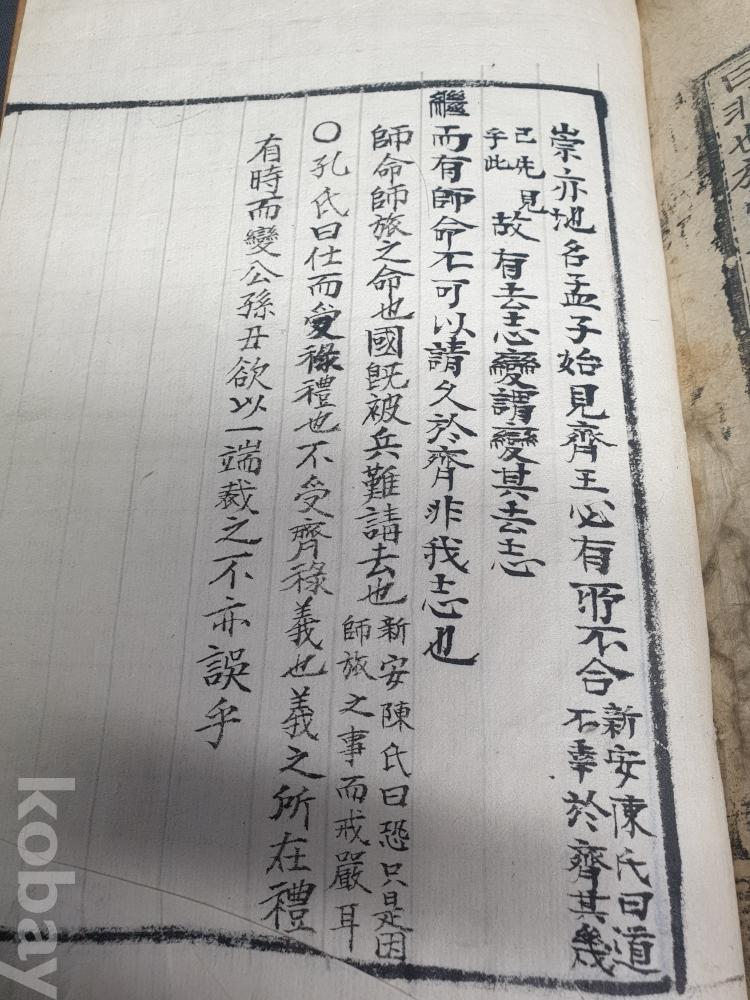 崇亦地名孟子始見齊王必有所不合新安陳氏曰道不幸於齊其幾
已先見乎此故有去志變謂變其去志
繼而有師命不可以請久於齊非我志也
師命師旅之命也國旣被兵難請去也新安陳氏曰恐只是因師旅之事而戒嚴耳
○孔氏曰仕而受祿禮也不受齊祿義也義之所在禮
有時而變公孫丑欲以一端裁之不亦誤乎
曰非也
kobay